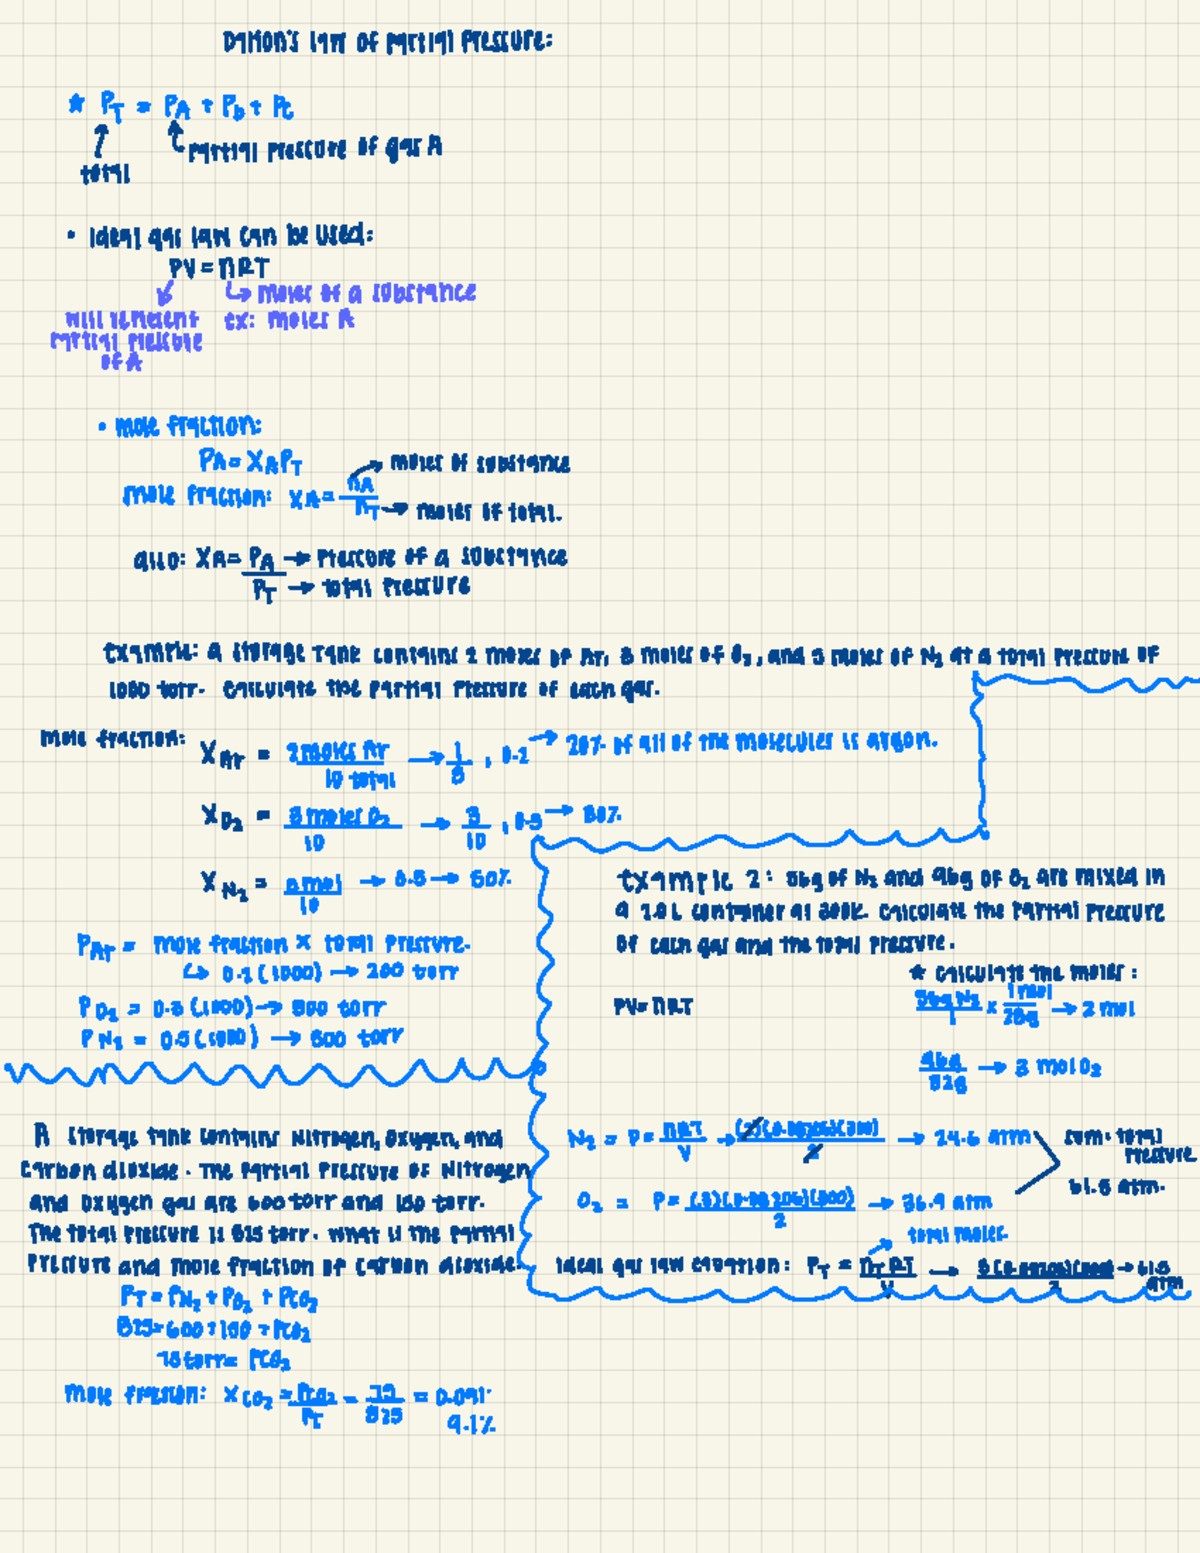 Dalton's law of partial pressure:
* P_T = P_A + P_b + P_C
partial pressure of gas A
total
• Ideal gas law can be used:
PV = nRT
moles of a substance
will represent ex: moles A
partial pressure
of A
• mole fraction:
P_A = X_A P_T
moles of substance
mole fraction: X_A = n_A / n_T → moles of total.
also: X_A = P_A → pressure of a substance
P_T → total pressure
Example: a storage tank contains 2 moles of Ar, 3 moles of O_2, and 5 moles of N_2 at a total pressure of
1000 torr. Calculate the partial pressure of each gas.
mole fraction: X_Ar = 2 moles Ar / 10 total → 1/5, 0.2 → 20% of all of the molecules is argon.
X_O2 = 3 moles O_2 / 10 → 3/10, 0.3 → 30%
X_N2 = 5 mol / 10 → 0.5 → 50%
P_Ar = mole fraction × total pressure.
↳ 0.2 (1000) → 200 torr
P_O2 = 0.3 (1000) → 300 torr
P_N2 = 0.5 (1000) → 500 torr
Example 2: 56g of N_2 and 96g of O_2 are mixed in
a 2.0 L container at 300K. Calculate the partial pressure
of each gas and the total pressure.
* calculate the moles:
PV = nRT
56g N_2 / 1 × 1 mol / 28g → 2 mol
96g / 32g → 3 mol O_2
N_2 = P = nRT / V → (2)(0.08206)(300) / 2 → 24.6 atm
sum = total
pressure
61.5 atm.
O_2 = P = (3)(0.08206)(300) / 2 → 36.9 atm
total moles
Ideal gas law equation: P_T = n_T RT / V → 5(0.08206)(300) / 2 → 61.5
atm
A storage tank contains Nitrogen, Oxygen, and
Carbon dioxide. The partial pressure of Nitrogen
and Oxygen gas are 600 torr and 150 torr.
The total pressure is 825 torr. What is the partial
pressure and mole fraction of carbon dioxide.
P_T = P_N2 + P_O2 + P_CO2
825 = 600 + 150 + P_CO2
75 torr = P_CO2
mole fraction: X_CO2 = P_CO2 / P_T = 75 / 825 = 0.091
9.1%